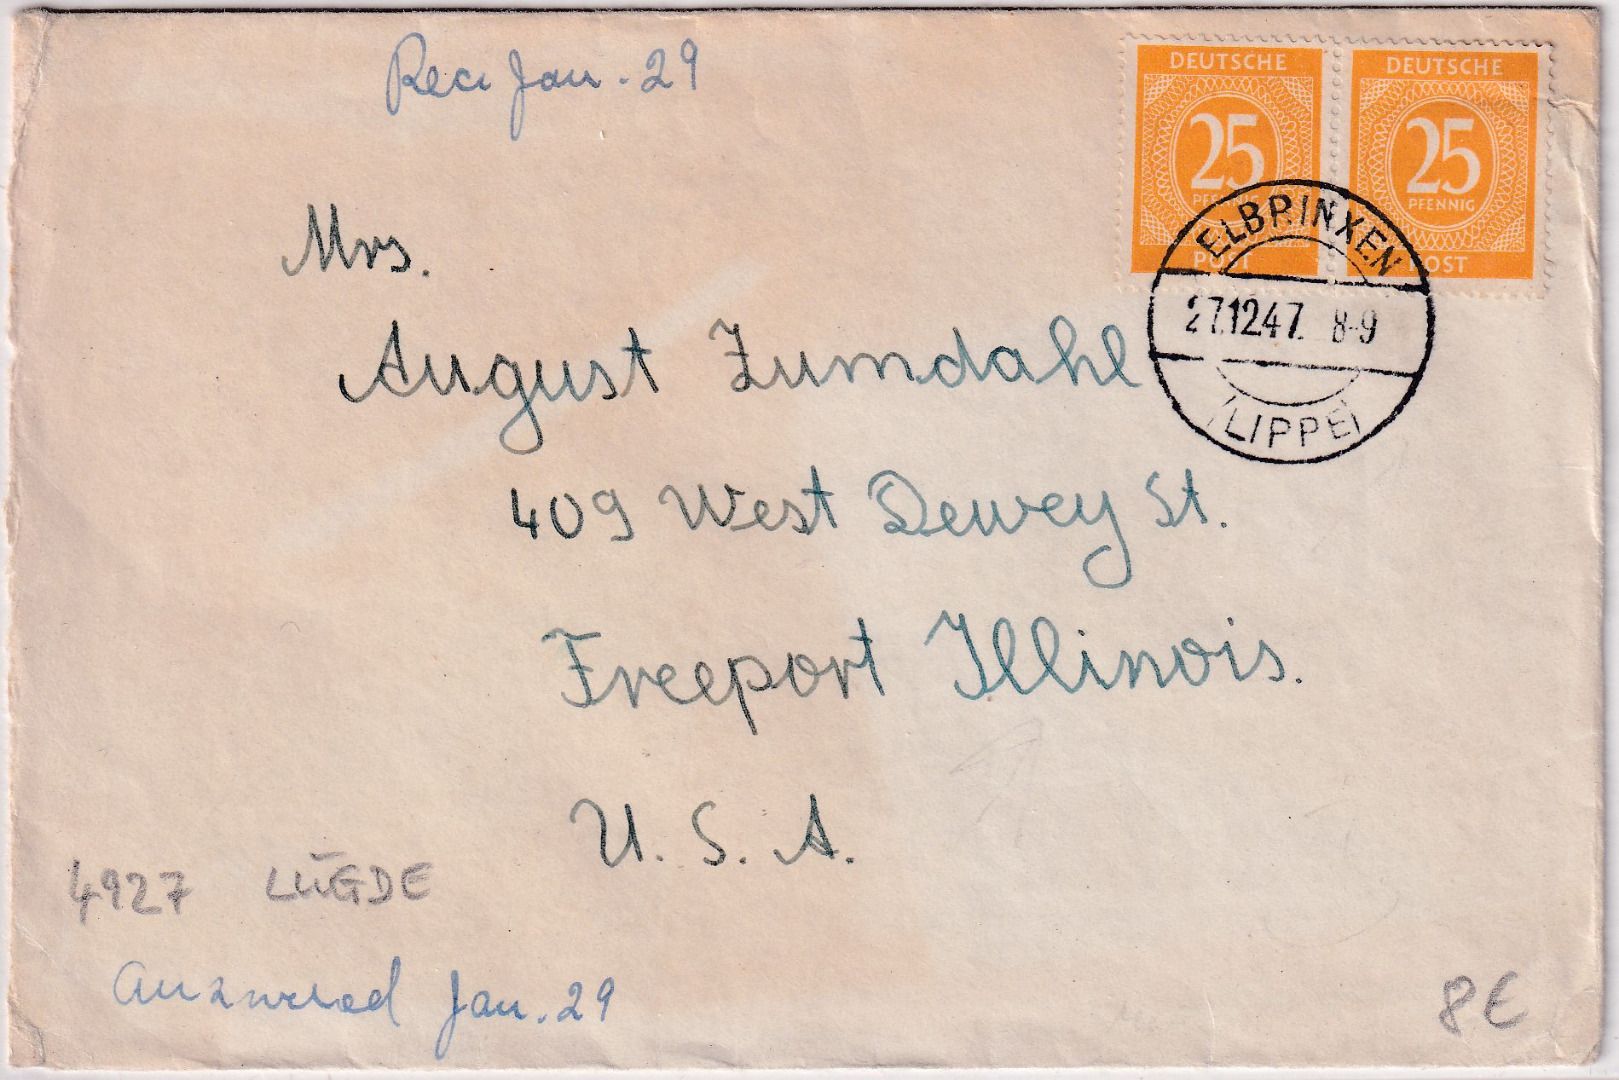 Rec. Jan. 29
DEUTSCHE
25
PFENNIG
POST
DEUTSCHE
25
PFENNIG
POST
ELBRINXEN
27.12.47. 8-9
(LIPPE)
Mrs.
August Zumdahl
409 West Dewey St.
Freeport Illinois.
U. S. A.
4927 LÜGDE
Answered Jan. 29
8€